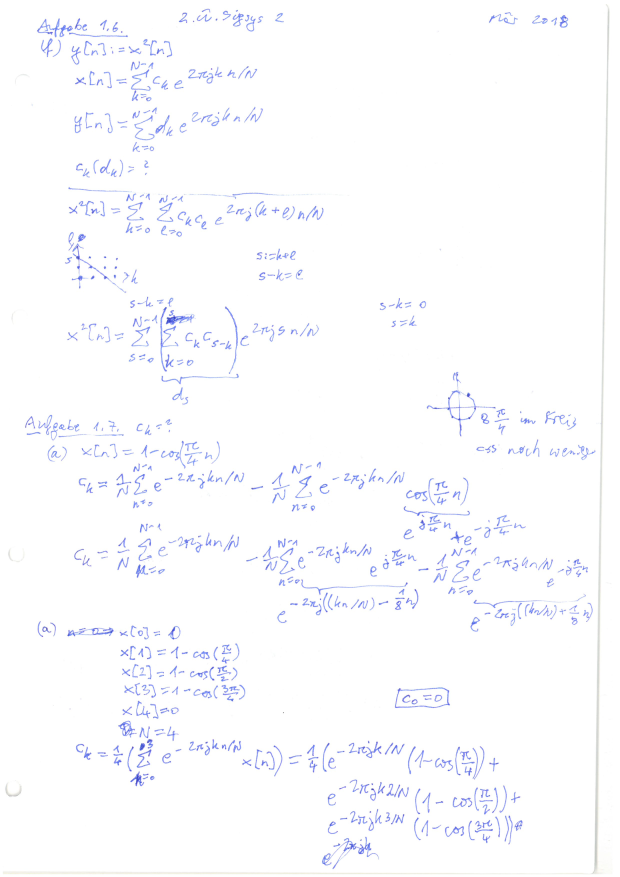 2. Ü. Sigsys 2
März 2018
Aufgabe 1.6.
f) y[n] := x²[n]
x[n] = ∑_{k=0}^{N-1} c_k e^{2πjkn/N}
y[n] = ∑_{k=0}^{N-1} d_k e^{2πjkn/N}
c_k(d_k) = ?
x²[n] = ∑_{k=0}^{N-1} ∑_{l=0}^{N-1} c_k c_l e^{2πj(k+l)n/N}
l
s
k
s-k=l
s:=k+l
s-k=l
s-k=0
s=k
x²[n] = ∑_{s=0}^{N-1} (∑_{k=0}^{s} c_k c_{s-k}) e^{2πjsn/N}
d_s
Aufgabe 1.7. c_k=?
8 π/4 im Kreis
cos noch weniger
(a) x[n] = 1-cos(π/4 n)
c_k = 1/N ∑_{n=0}^{N-1} e^{-2πjkn/N} - 1/N ∑_{n=0}^{N-1} e^{-2πjkn/N} cos(π/4 n)
e^{jπ/4 n} + e^{-jπ/4 n}
c_k = 1/N ∑_{n=0}^{N-1} e^{-2πjkn/N} - 1/N ∑_{n=0}^{N-1} e^{-2πjkn/N} e^{jπ/4 n} - 1/N ∑_{n=0}^{N-1} e^{-2πjkn/N} e^{-jπ/4 n}
e^{-2πj((kn/N) - 1/8 n)}
e^{-2πj((kn/N) + 1/8 n)}
(a) x[0] = 0
x[1] = 1-cos(π/4)
x[2] = 1-cos(π/2)
x[3] = 1-cos(3π/4)
x[4] = 0
N=4
c_0=0
c_k = 1/4 (∑_{n=0}^{3} e^{-2πjkn/N} x[n]) = 1/4 (e^{-2πjk/N} (1-cos(π/4)) +
e^{-2πjk2/N} (1-cos(π/2)) +
e^{-2πjk3/N} (1-cos(3π/4)))